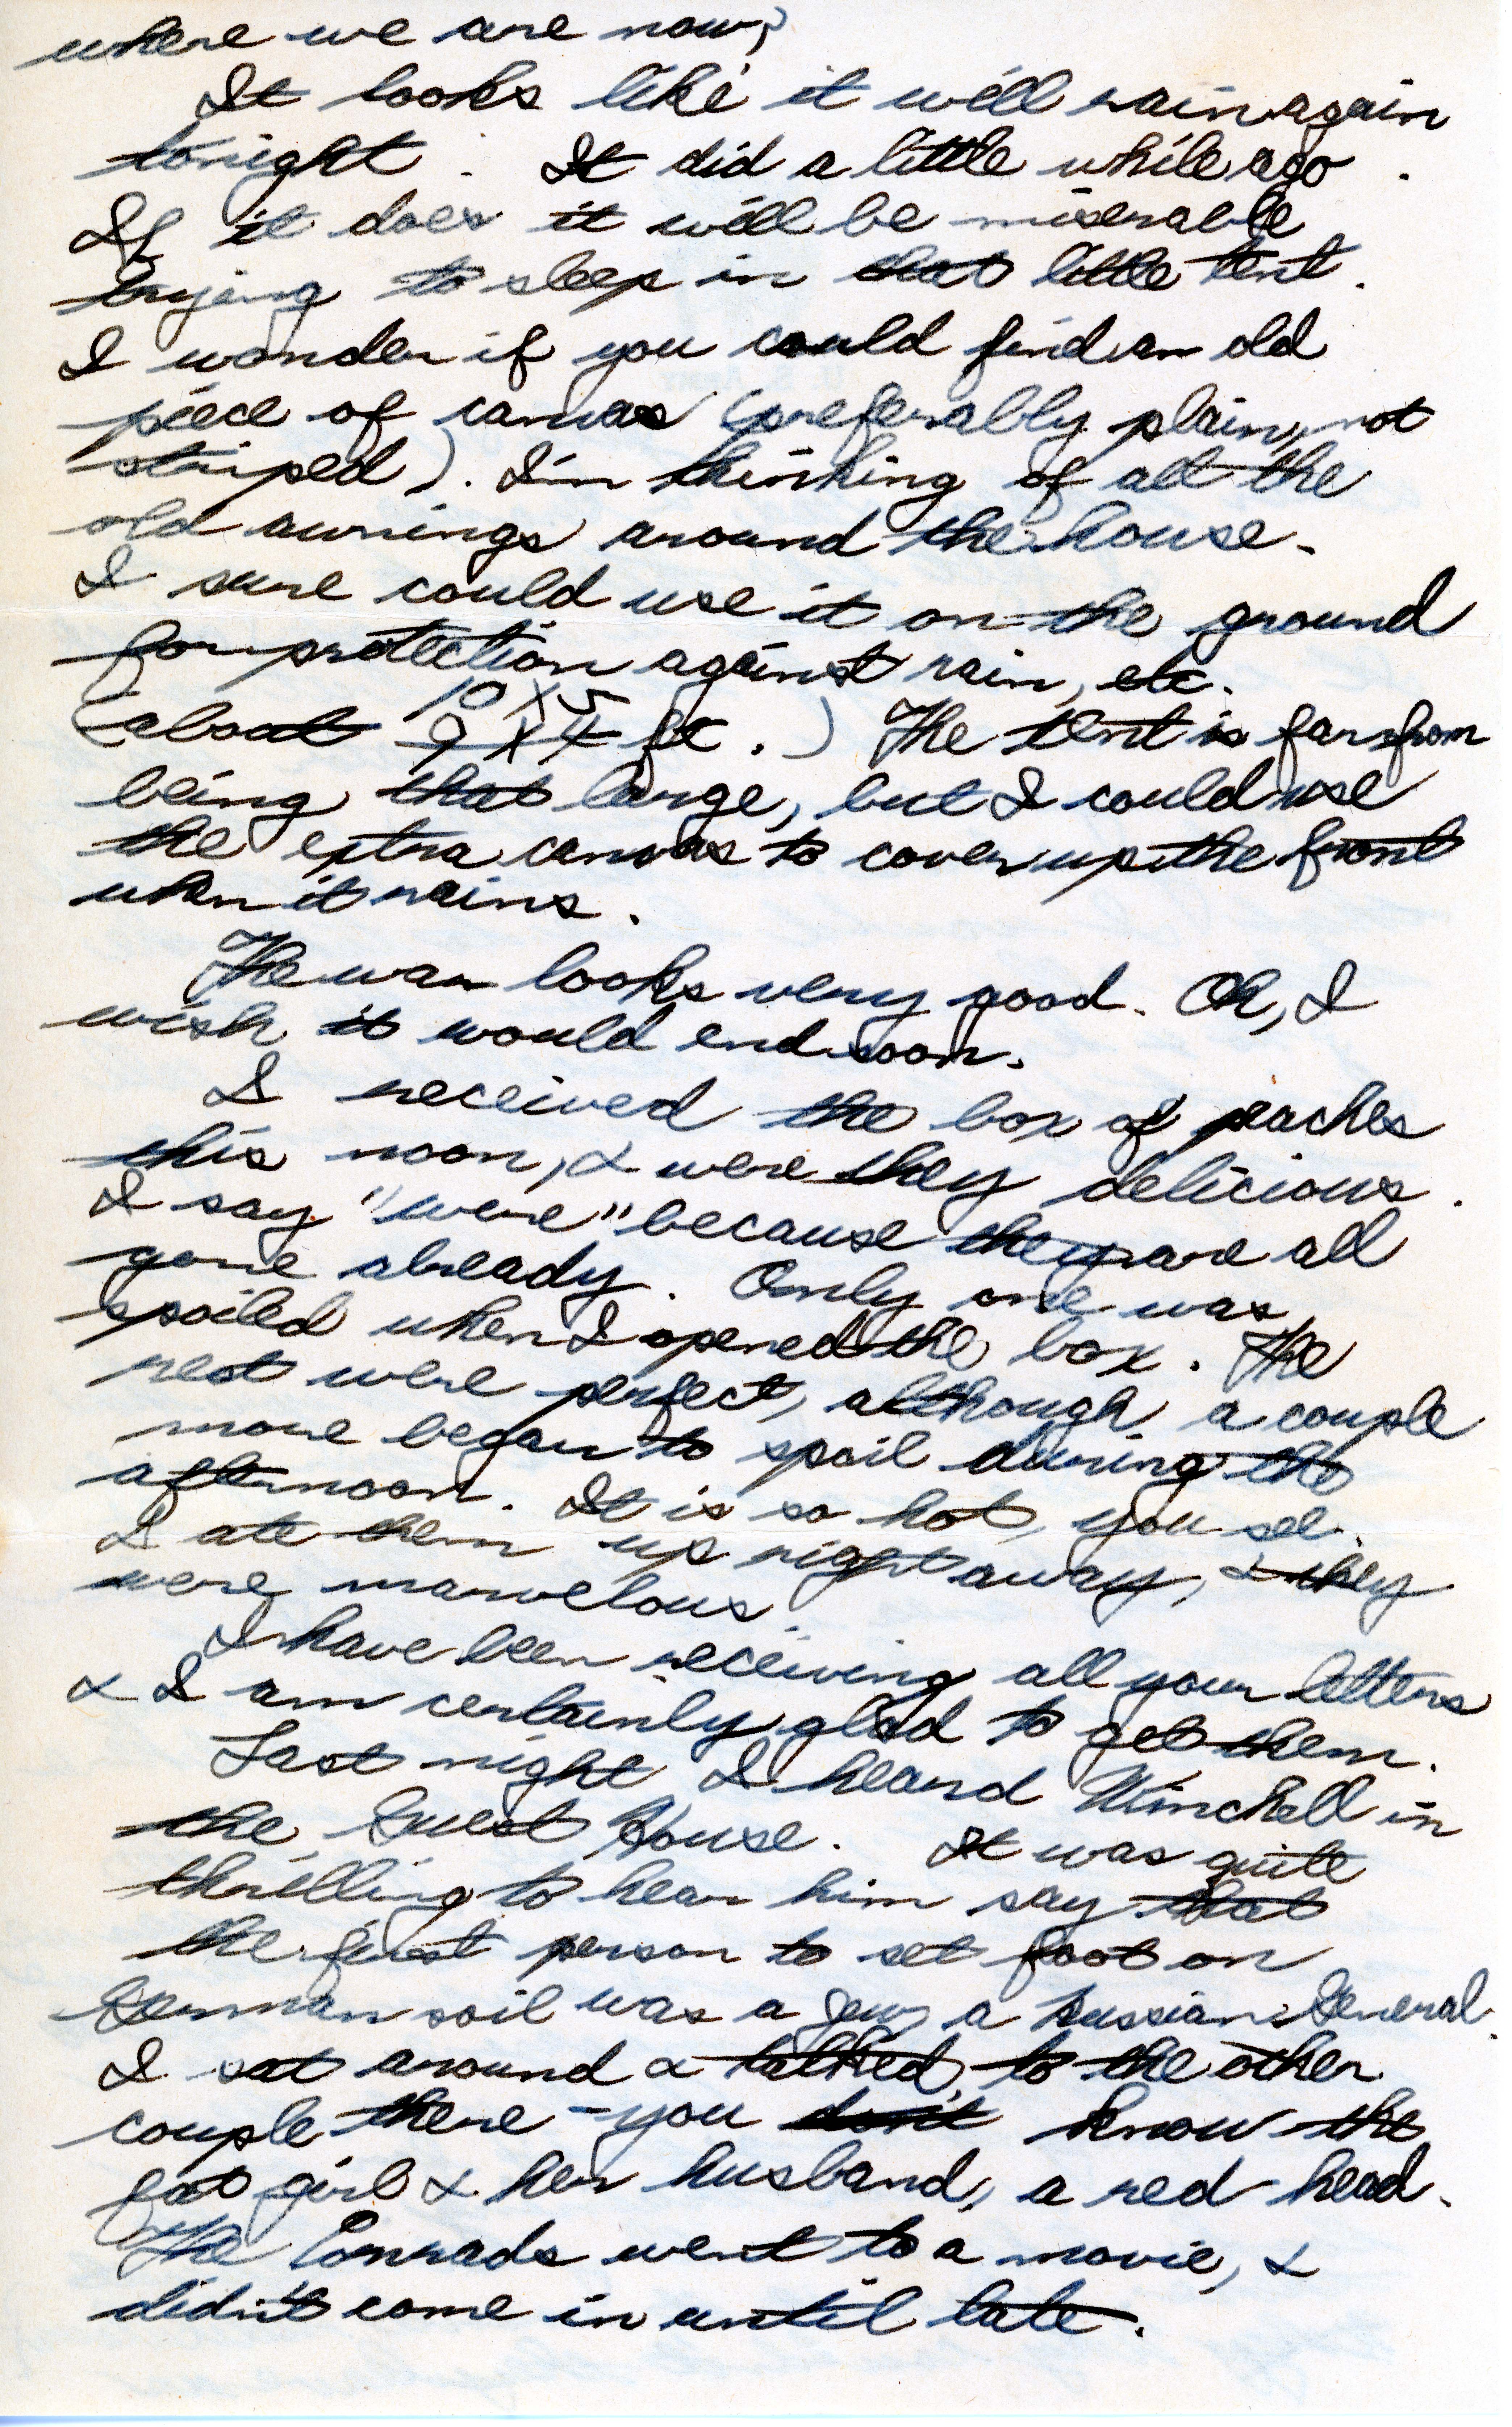 where we are now?
It looks like it will rain again
tonight. It did a little while ago.
If it does it will be miserable
trying to sleep in that little tent.
I wonder if you could find an old
piece of canvas (preferably plain, not
striped). I'm thinking of all the
old awnings around the house.
I sure could use it on the ground
for protection against rain, etc.
10 x 5
(about 9 x 4 ft.) The tent is far from
being that large, but I could use
the extra canvas to cover up the front
when it rains.
The war looks very good. Oh, I
wish it would end soon.
I received the box of peaches
this noon, & were they delicious.
I say "were" because they are all
gone already. Only one was
spoiled when I opened the box. The
rest were perfect, although a couple
more began to spoil during the
afternoon. It is so hot, you see.
I ate them up right away, & they
were marvelous.
I have been receiving all your letters
& I am certainly glad to get them.
Last night I heard Winchell in
the Guest House. It was quite
thrilling to hear him say that
the first person to set foot on
German soil was a Jew, a Russian General.
I sat around & talked to the other
couple there - you don't know the
fat girl & her husband, a red-head.
The Conrads went to a movie, &
didn't come in until late.